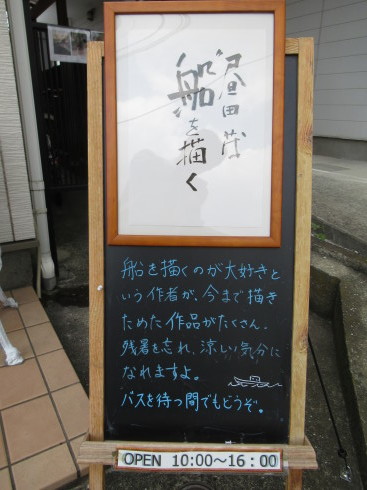 昼田 茂
船を描く
船を描くのが大好きと
いう作者が、今まで描き
ためた作品がたくさん。
残暑を忘れ、涼しい気分に
なれますよ。
バスを待つ間でもどうぞ。
OPEN 10:00～16:00